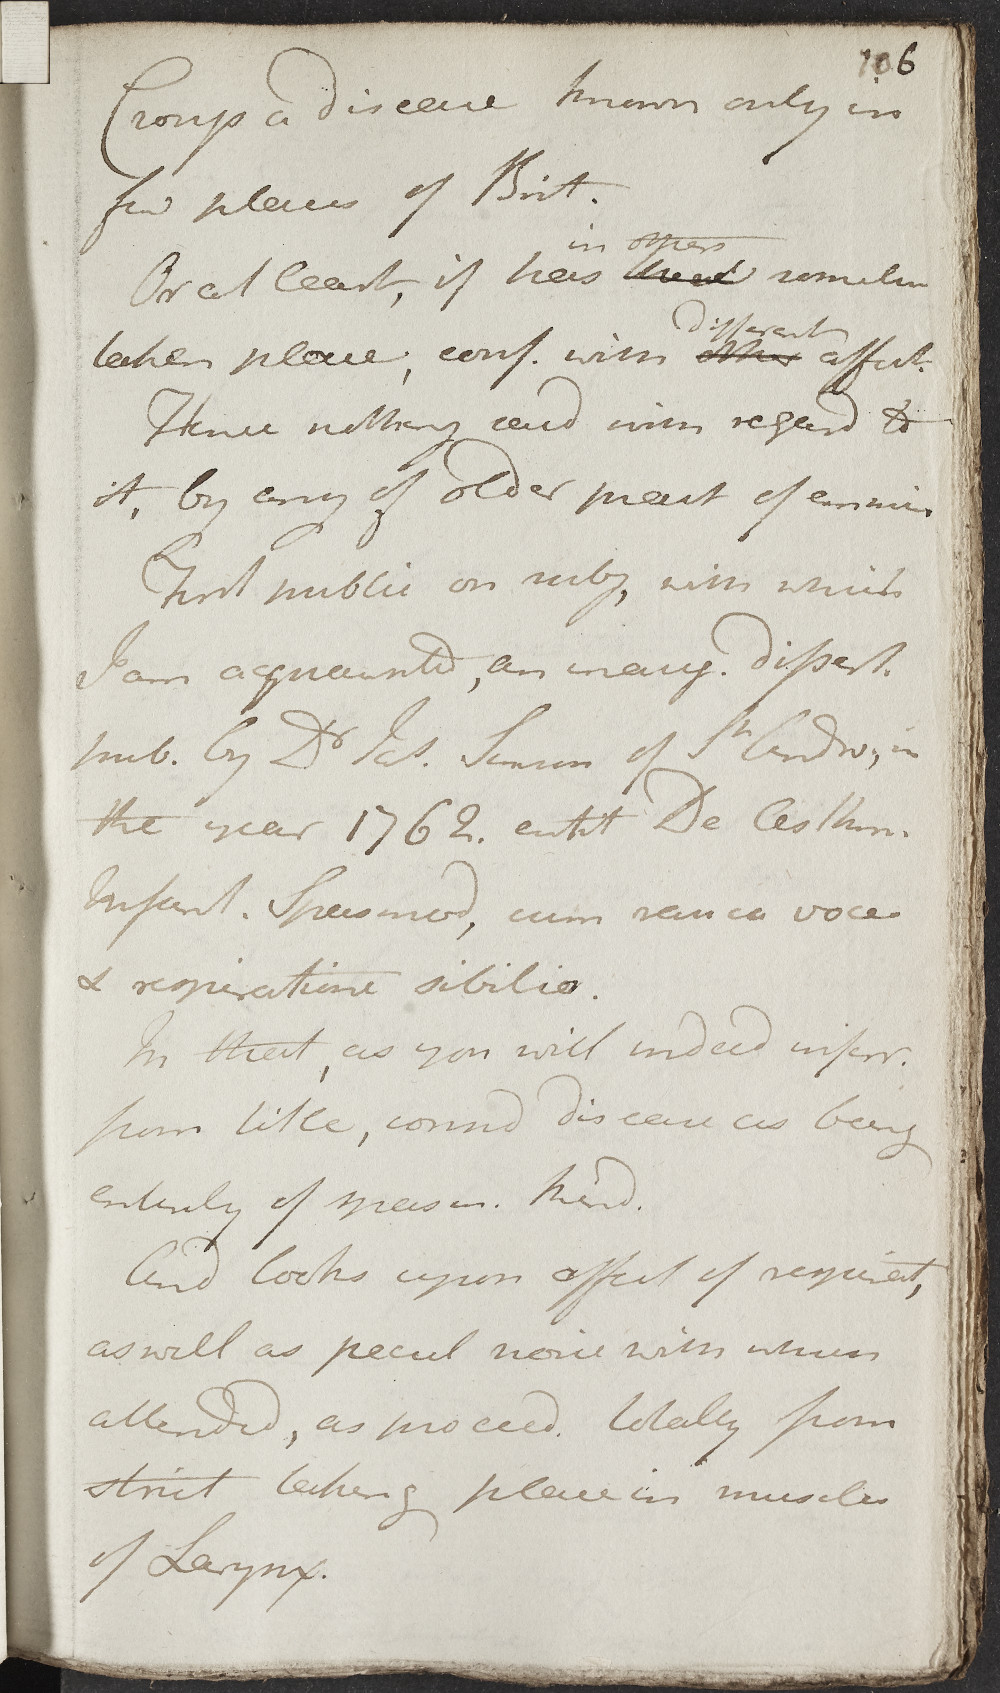 106
Croup a disease known only in
few places of Brit.
in others
Or at least, if has had somelim
different
taken place, conf. with other affect.
Hence nothing said with regard to
it, by any of older pract of eminen
First public on subj, with which
I am acquainted, an inaug. dissert.
pub. by Dr Jas. Simson of St Andw, in
the year 1762. entit De Asthm.
Infant. Spasmod, cum rauca voce
& respiratione sibilia.
In that, as you will indeed inferr.
from title, consid disease as being
entirely of spasm. kind.
And looks upon affect of respirat,
as well as pecul noise with which
attended, as proceed. totally from
strict taking place in muscles
of Larynx.